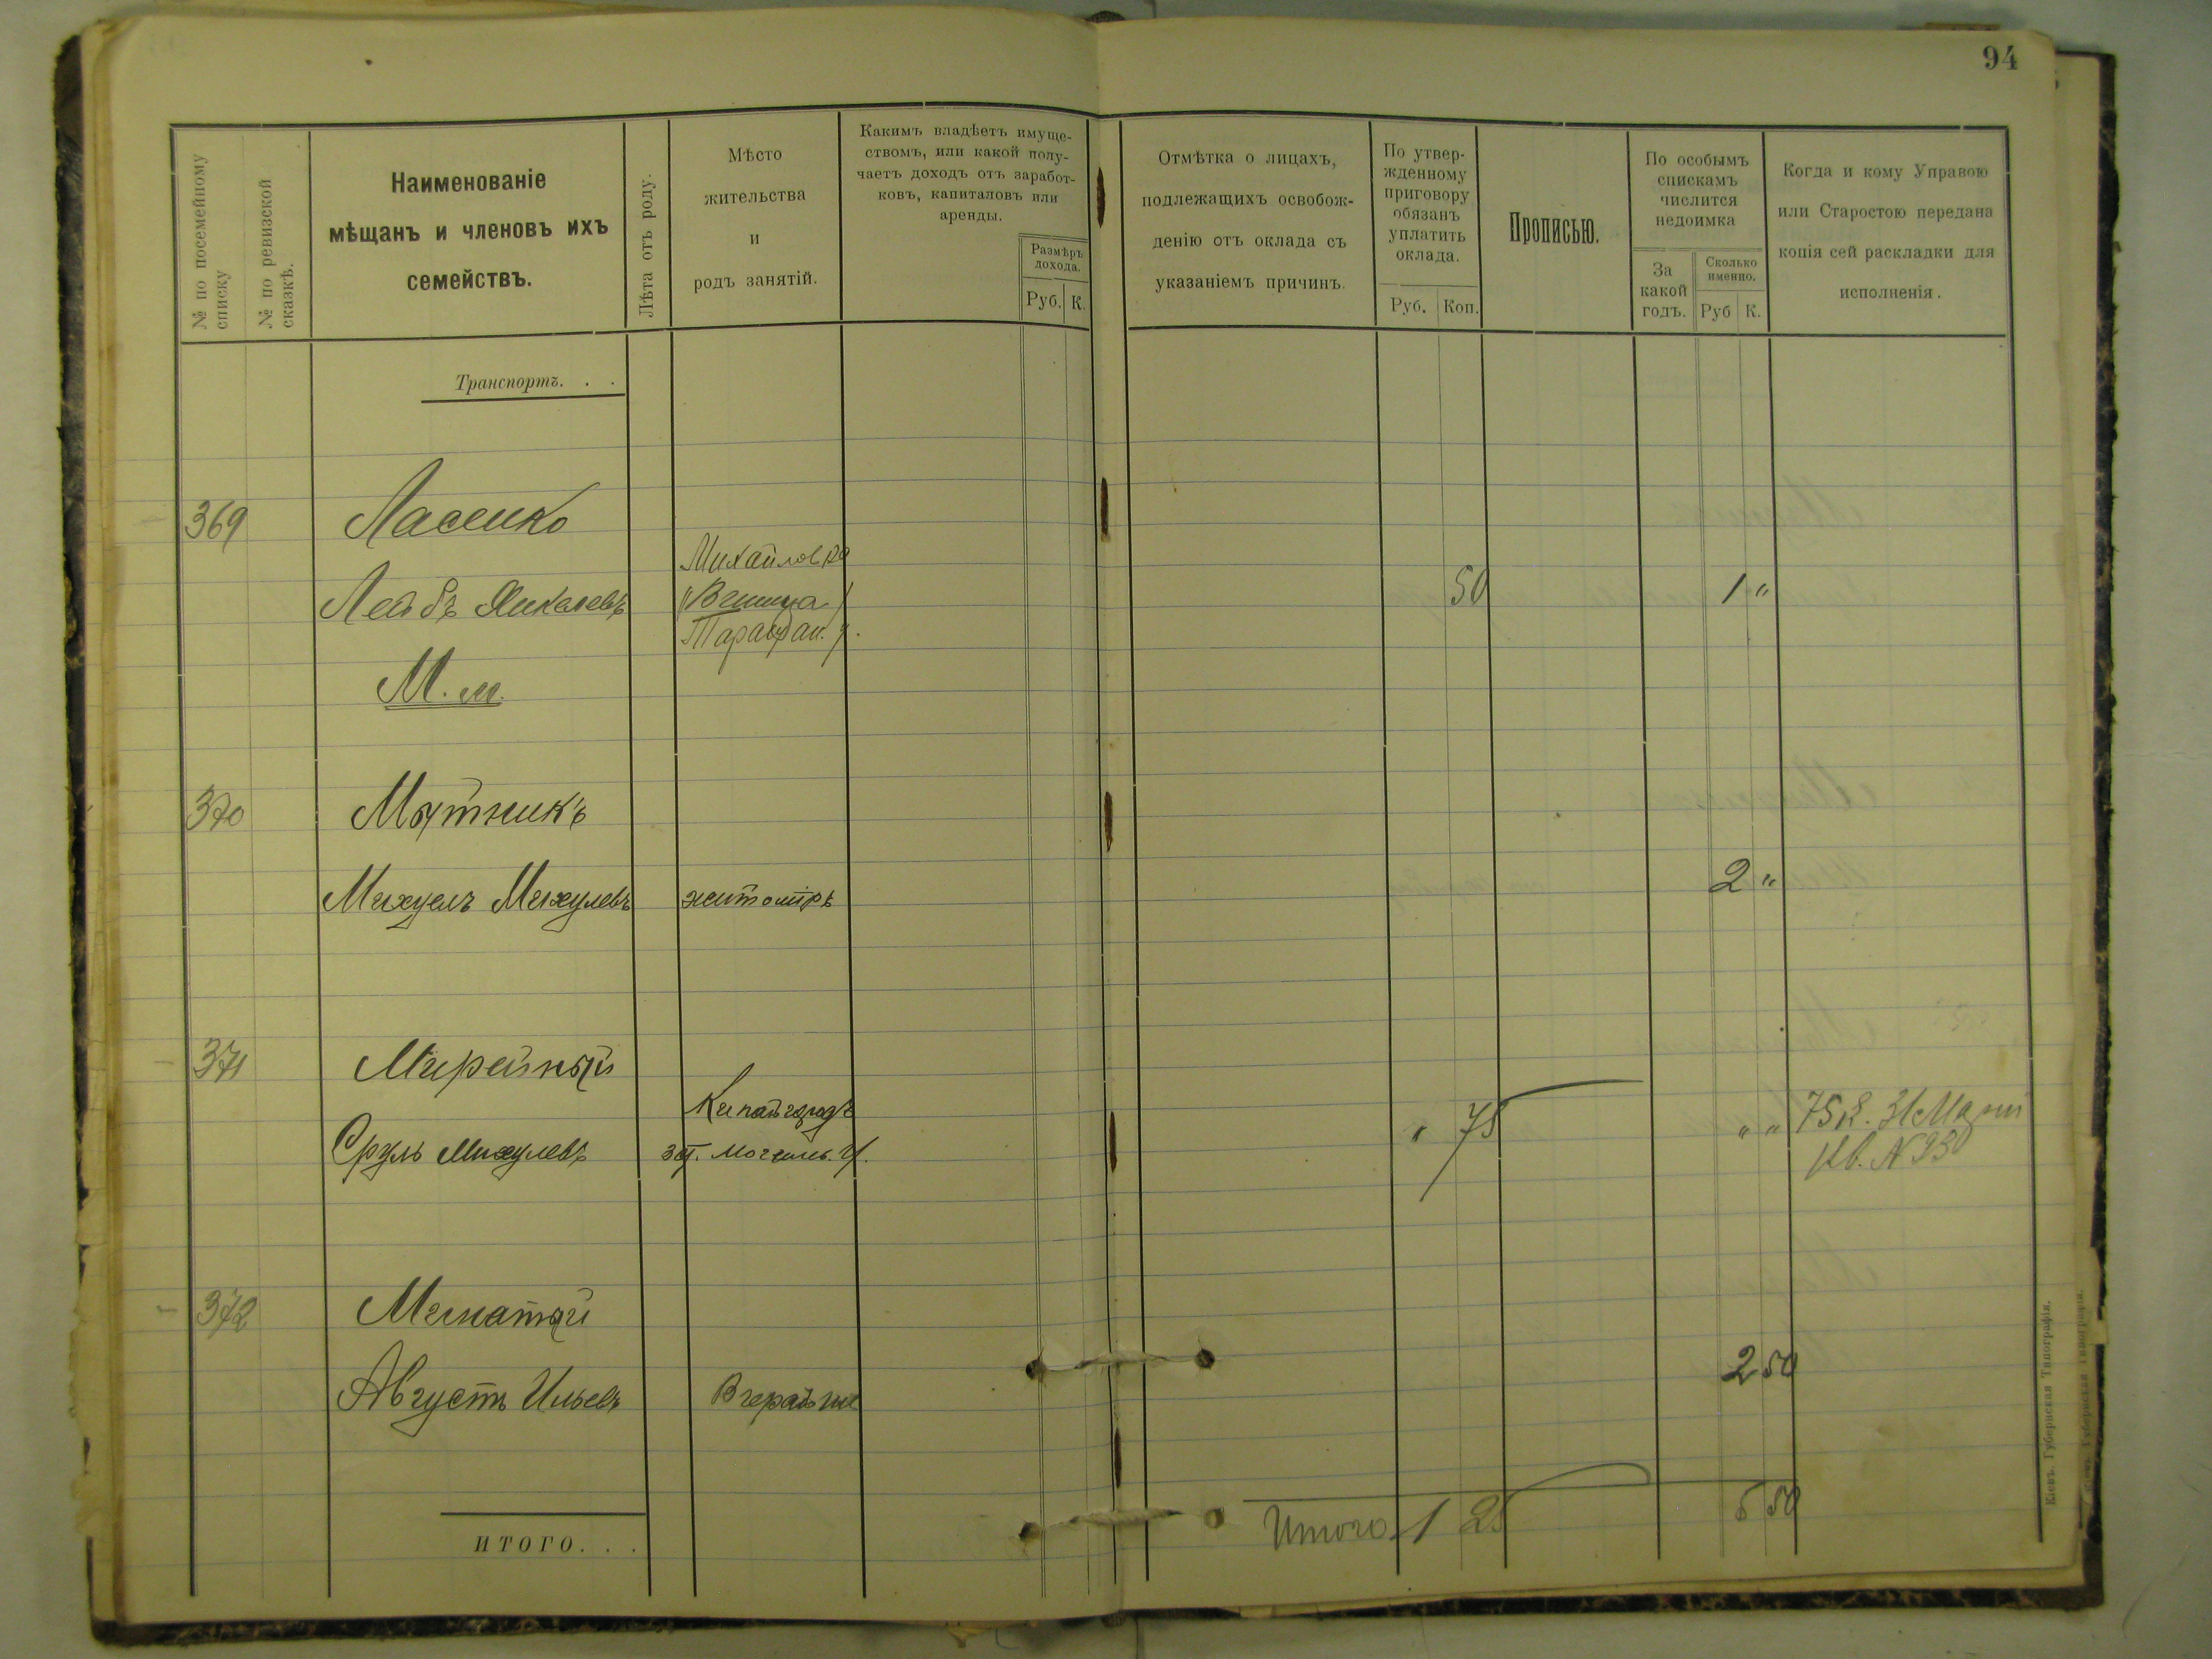 94
№ по посемейному списку
№ по ревизской сказкѣ.
Наименованіе
мѣщанъ и членовъ ихъ
семействъ.
Лѣта отъ роду.
Мѣсто
жительства
и
родъ занятій.
Какимъ владѣетъ имуще-
ствомъ, или какой полу-
чаетъ доходъ отъ заработ-
ковъ, капиталовъ или
аренды.
Размѣръ
дохода.
Руб. К.
Отмѣтка о лицахъ,
подлежащихъ освобож-
денію отъ оклада съ
указаніемъ причинъ.
По утвер-
жденному
приговору
обязанъ
уплатить
оклада.
Руб. Коп.
Прописью.
По особымъ
спискамъ
числится
недоимка
За
какой
годъ.
Сколько
именно.
Руб К.
Когда и кому Управою
или Старостою передана
копія сей раскладки для
исполненія.
Транспортъ. . .
369 Ласенко
Михайловка
Лейбъ 50 1 "
М. м.
370 Мятникъ
Михуелъ Михулевъ житомiръ 2 "
371 Мирейный
Копайгородъ
Сруль Михулевъ Могилев. у. " 75 " " 75 к.
Кв. № 930
372
Августъ Ильевъ Вчерайше 2 50
ИТОГО. . .
Итого 1 25 5 50
Кіевъ. Губернская Типографія.